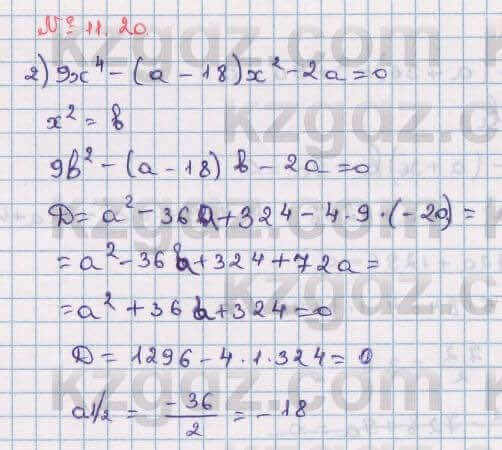 № 11. 20.
2) 9x⁴ - (a - 18)x² - 2a = 0
x² = b
9b² - (a - 18) b - 2a = 0
D = a² - 36a + 324 - 4 · 9 · (-2a) =
= a² - 36a + 324 + 72a =
= a² + 36a + 324 = 0
D = 1296 - 4 · 1 · 324 = 0
a1/2 = -36/2 = -18
kzgdz.com